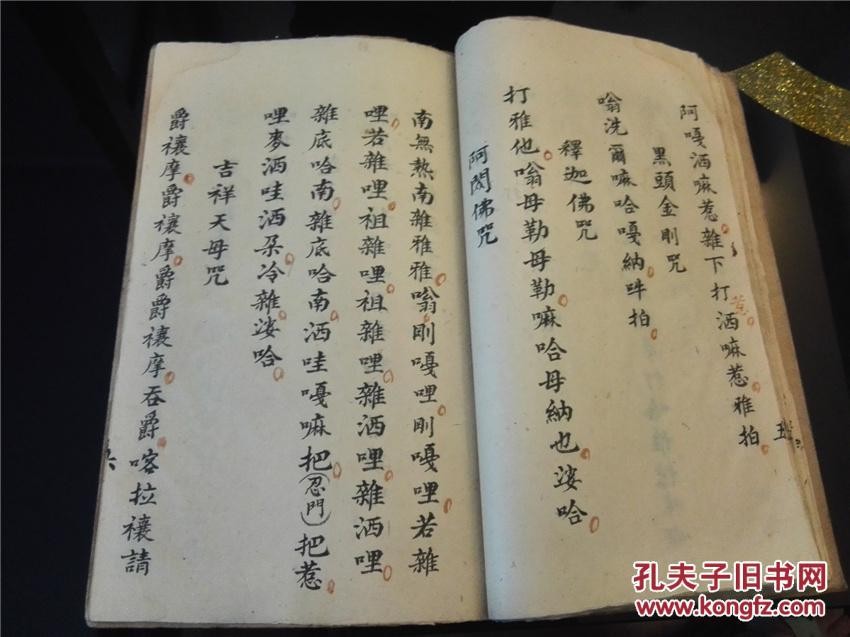 阿嘎洒嘛惹雜下打洒嘛惹雅拍
惹
黑頭金剛咒
嗡洗爾嘛哈嘎納吽拍
釋迦佛咒
打雅他嗡母勒母勒嘛哈母納也娑哈
阿閦佛咒
南無熱南雜雅雅嗡剛嘎哩剛嘎哩若雜
哩若雜哩祖雜哩祖雜哩雜洒哩雜洒哩
雜底哈南雜底哈南洒哇嘎嘛把(忍門)把惹
哩麥洒哇洒朶冷雜娑哈
吉祥天母咒
爵禳摩爵禳摩爵爵禳摩吞爵喀拉禳請
孔夫子旧书网
www.kongfz.com